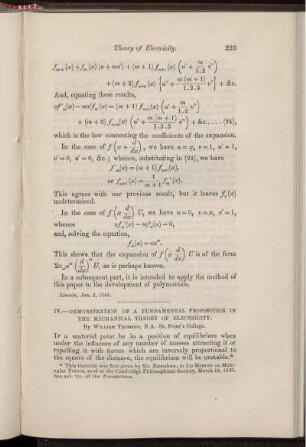 Theory of Electricity. 223
And, equating these results,
which is the law connecting the coefficients of the expansion.
In the case of f (x + d/dx), we have u = x, v = 1, u' = 1,
v' = 0, u'' = 0, &c.; whence, substituting in (24), we have
f'ₘ(x) = (m + 1) fₘ₊₁(x),
or fₘ₊₁(x) = 1/(m + 1) . f'ₘ(x).
This agrees with our previous result, but it leaves f₀(x)
undetermined.
In the case of f (x d/dx) U, we have u = 0, v = x, v' = 1,
whence
and, solving the equation,
fₘ(x) = axᵐ.
This shows that the expansion of f (x d/dx) U is of the form
Σaₘxᵐ (d/dx)ᵐ U, as is perhaps known.
In a subsequent part, it is intended to apply the method of
this paper to the development of polynomials.
Lincoln, Jan. 2, 1845.
IV.—DEMONSTRATION OF A FUNDAMENTAL PROPOSITION IN
THE MECHANICAL THEORY OF ELECTRICITY.
By WILLIAM THOMSON, B.A. St. Peter's College.
IF a material point be in a position of equilibrium when
under the influence of any number of masses attracting it or
repelling it with forces which are inversely proportional to
the square of the distance, the equilibrium will be unstable.*
* This theorem was first given by Mr. Earnshaw, in his Memoir on Mole-
cular Forces, read at the Cambridge Philosophical Society, March 18, 1839.
See vol. VII. of the Transactions.